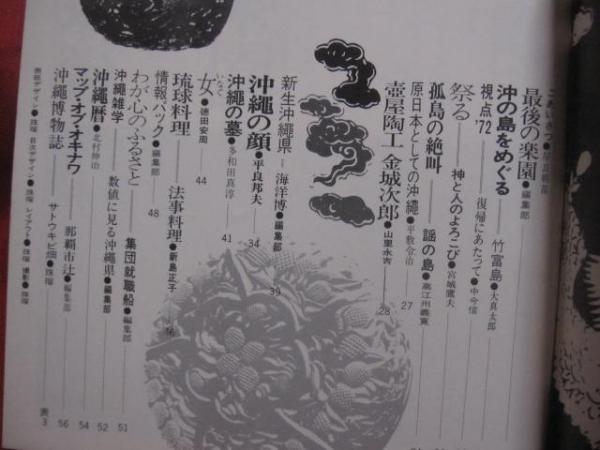 最後の楽園●編集部
沖の島をめぐる――竹富島●大真太郎
視点'72――復帰にあたって●中今信
祭る――神と人のよろこび●宮城鷹夫
孤島の絶叫――謡の島●高江州義寛
原日本としての沖縄●平敷令治 27
壺屋陶工 金城次郎●山里永吉 28
新生沖縄県――海洋博●編集部 39
沖縄の顔●平良邦夫 34
沖縄の墓●多和田真淳 41
女●徳田安周 44
いなぐ
琉球料理――法事料理●新島正子 46
情報パック●編集部 48
わが心のふるさと――集団就職船●編集部 51
沖縄雑学――数値に見る沖縄県●編集部 52
沖縄暦●北村伸治 54
マップ・オブ・オキナワ――那覇市辻●編集部 56
沖縄博物誌――サトウキビ畑●珠瑠 表3
表紙デザイン●珠瑠 目次デザイン●珠瑠 レイアウト●珠瑠 撮影●珠瑠